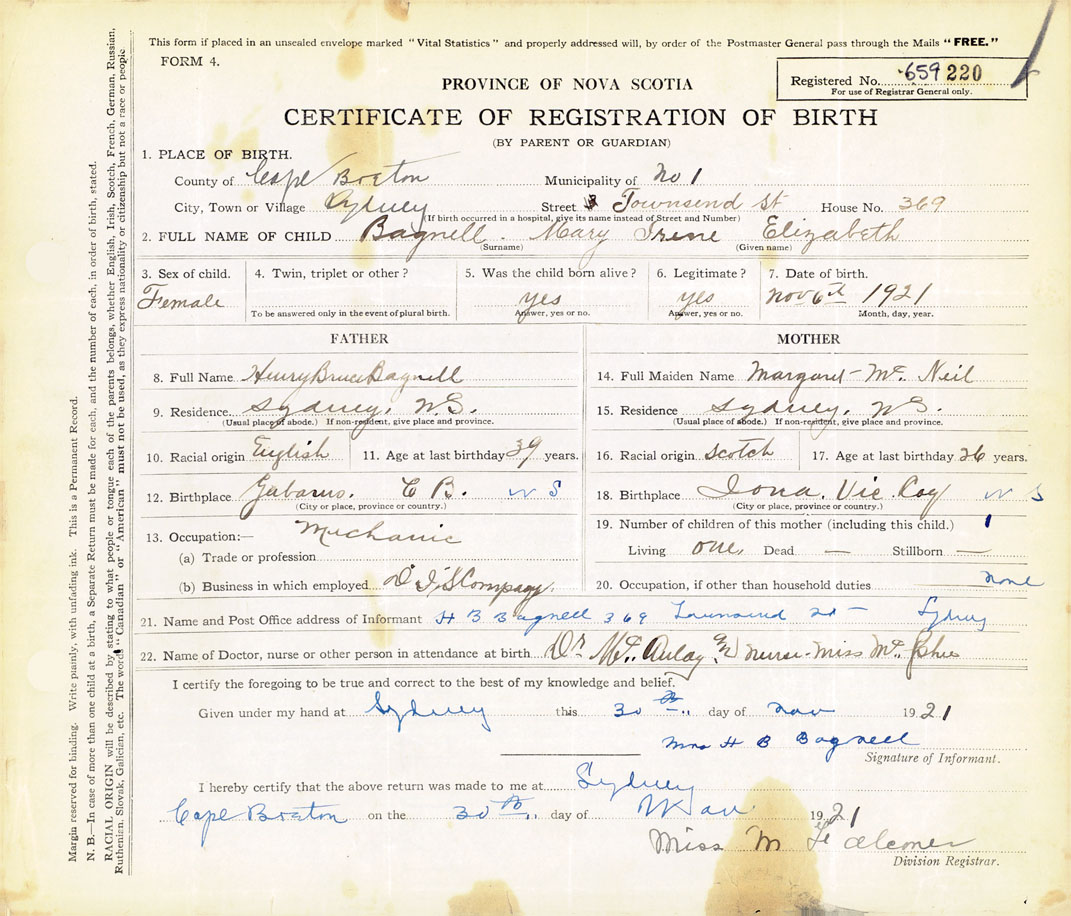 This form if placed in an unsealed envelope marked "Vital Statistics" and properly addressed will, by order of the Postmaster General pass through the Mails "FREE."
FORM 4.
Registered No. 659 220
For use of Registrar General only.
PROVINCE OF NOVA SCOTIA
CERTIFICATE OF REGISTRATION OF BIRTH
(BY PARENT OR GUARDIAN)
1. PLACE OF BIRTH.
County of Cape Breton Municipality of No 1
City, Town or Village Sydney Street Townsend St House No. 369
(If birth occurred in a hospital, give its name instead of Street and Number)
2. FULL NAME OF CHILD Bagnell. Mary Irene Elizabeth
(Surname) (Given name)
3. Sex of child. 4. Twin, triplet or other? 5. Was the child born alive? 6. Legitimate? 7. Date of birth.
Female yes yes Nov 6th 1921
To be answered only in the event of plural birth. Answer, yes or no. Answer, yes or no. Month, day, year.
FATHER
8. Full Name Henry Bruce Bagnell
9. Residence Sydney, N.S.
(Usual place of abode.) If non-resident, give place and province.
10. Racial origin English 11. Age at last birthday 39 years.
12. Birthplace Gabarus. C B. N S
(City or place, province or country.)
13. Occupation:— Mechanic
(a) Trade or profession
(b) Business in which employed D. I. S Company.
MOTHER
14. Full Maiden Name Margaret Mc. Neil
15. Residence Sydney, N.S.
(Usual place of abode.) If non-resident, give place and province.
16. Racial origin Scotch 17. Age at last birthday 26 years.
18. Birthplace Iona. Vic. Coy N S
(City or place, province or country.)
19. Number of children of this mother (including this child.) 1
Living one, Dead — Stillborn —
20. Occupation, if other than household duties none
21. Name and Post Office address of Informant H B Bagnell 369 Townsend St Sydney
22. Name of Doctor, nurse or other person in attendance at birth Dr Mc. Aulay nurse Miss Mc.
I certify the foregoing to be true and correct to the best of my knowledge and belief.
Given under my hand at Sydney this 30th day of Nov 1921
Mrs H B Bagnell
Signature of Informant.
I hereby certify that the above return was made to me at Sydney
Cape Breton on the 30th day of Nov 1921
Miss M Falconer
Division Registrar.
Margin reserved for binding. Write plainly, with unfading ink. This is a Permanent Record.
N. B.—In case of more than one child at a birth, a Separate Return must be made for each, and the number of each, in order of birth, stated.
RACIAL ORIGIN will be described by stating to what people or tongue each of the parents belongs, whether English, Irish, Scotch, French, German, Russian,
Ruthenian, Slovak, Galician, etc. The word "Canadian" or "American" must not be used, as they express nationality or citizenship but not a race or people